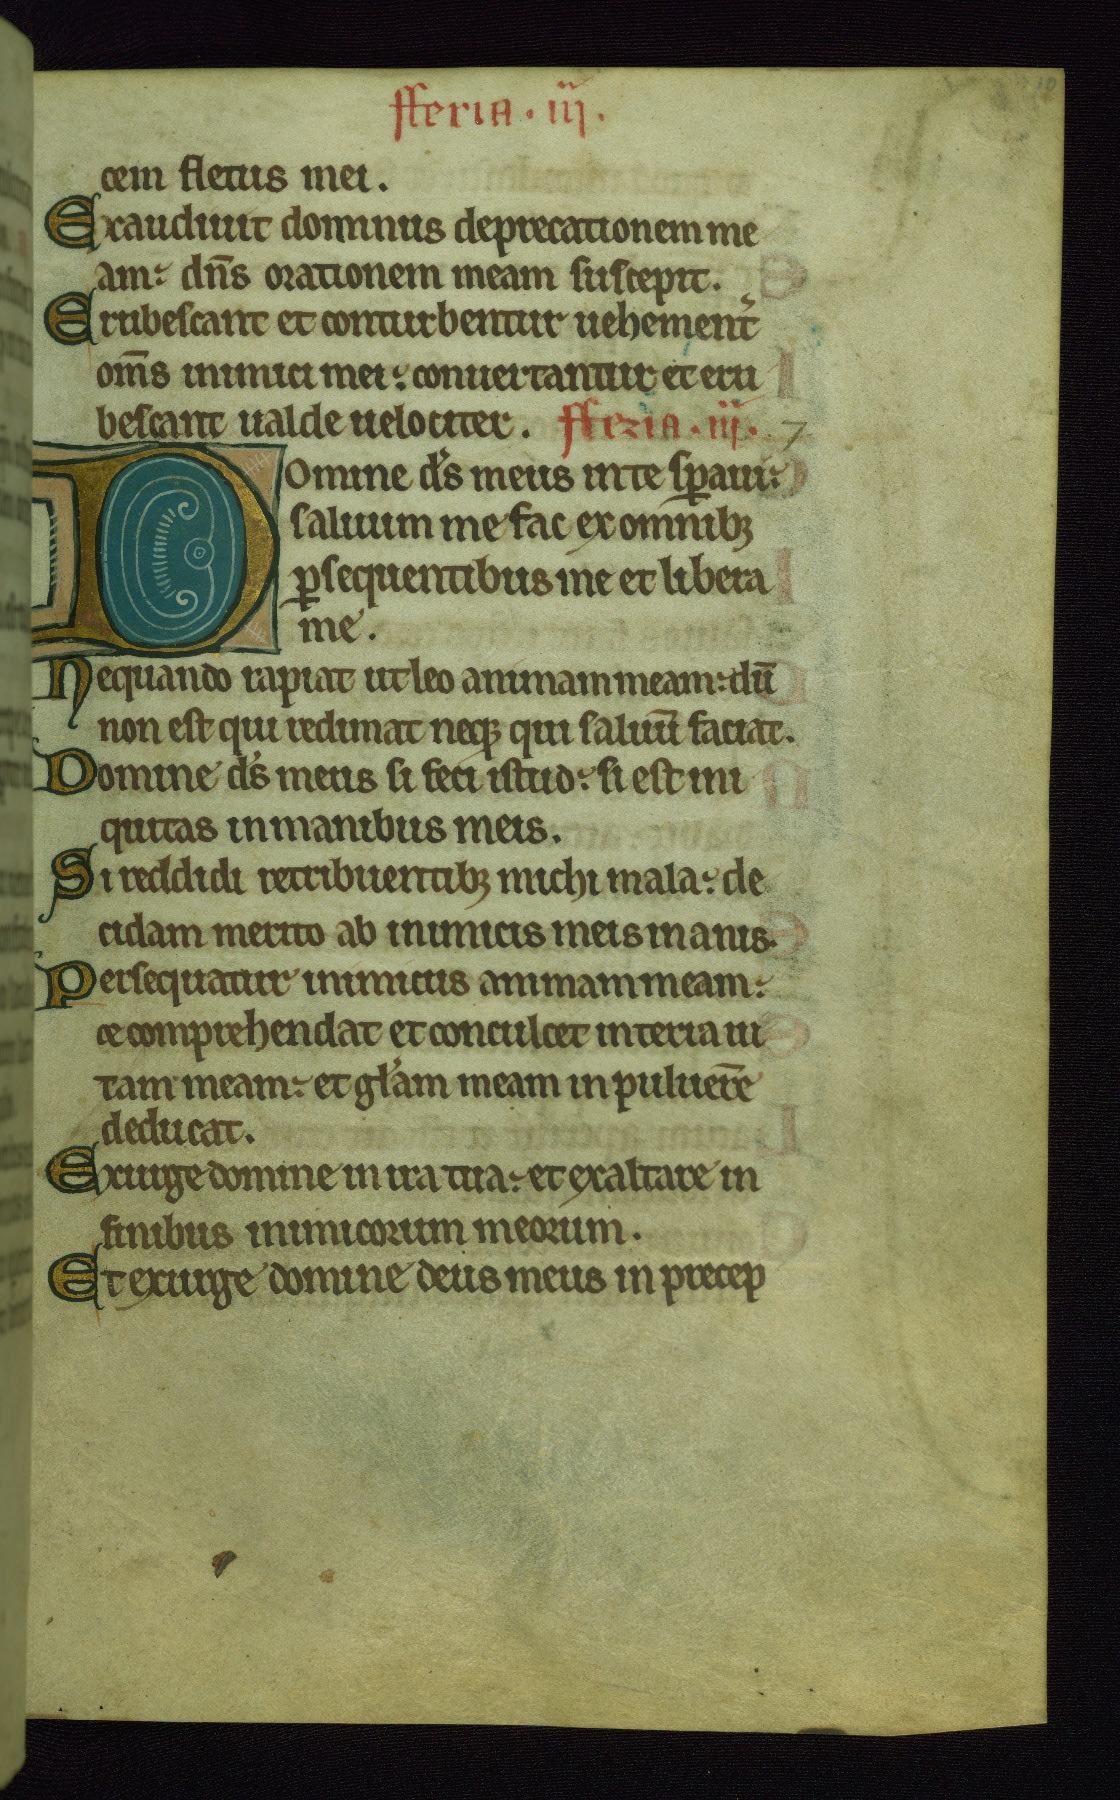 fferia · iij ·
cem fletus mei.
Exaudiuit dominus deprecationem me
am: dn̄s orationem meam suscepit.
Erubescant et conturbentur uehement᷑
om̄s inimici mei: conuertantur et eru
bescant ualde uelociter. fferia · iij · 7
Domine d̄s meus in te sꝑaui:
saluum me fac ex omnibꝫ
ꝑsequentibus me et libera
me.
Nequando rapiat ut leo animam meam: dū
non est qui redimat neqꝫ qui saluū faciat.
Domine d̄s meus si feci istud: si est ini
quitas in manibus meis.
Si reddidi retribuentibꝫ michi mala: de
cidam merito ab inimicis meis inanis.
Persequatur inimicus animam meam:
et comprehendat et conculcet in terra ui
tam meam: et gl̄am meam in puluerē
deducat.
Exurge domine in ira tua: et exaltare in
finibus inimicorum meorum.
Et exurge domine deus meus in precep